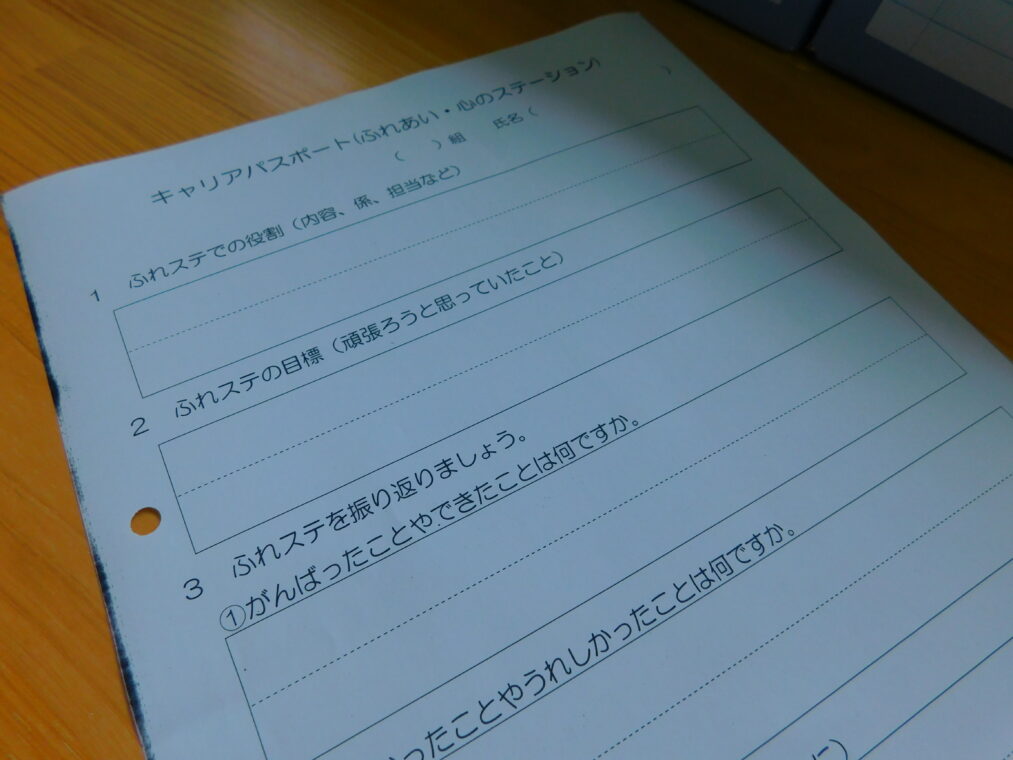 キャリアパスポート(ふれあい・心のステーション)
（　）組　氏名（　）
1　ふれステでの役割（内容、係、担当など）
2　ふれステの目標（頑張ろうと思っていたこと）
3　ふれステを振り返りましょう。
①がんばったことやできたことは何ですか。
ったことやうれしかったことは何ですか。
に）